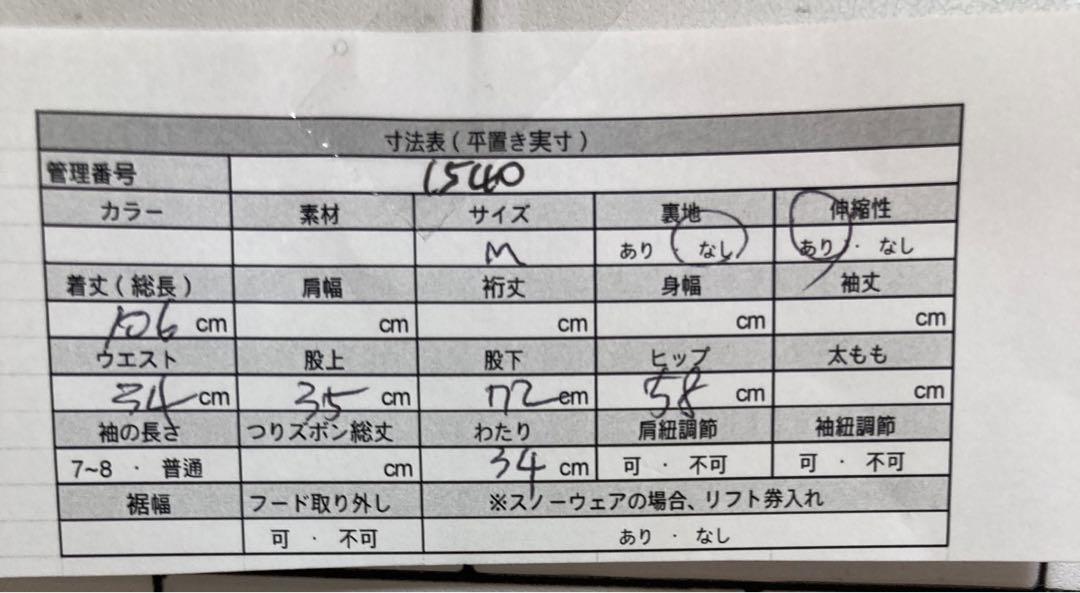 寸法表(平置き実寸)
管理番号 1540
カラー 素材 サイズ 裏地 伸縮性
M あり・なし あり・なし
着丈(総長) 肩幅 裄丈 身幅 袖丈
106cm cm cm cm cm
ウエスト 股上 股下 ヒップ 太もも
34cm 35cm 72cm 58cm cm
袖の長さ つりズボン総丈 わたり 肩紐調節 袖紐調節
7~8・普通 cm 34cm 可・不可 可・不可
裾幅 フード取り外し ※スノーウェアの場合、リフト券入れ
可・不可 あり・なし